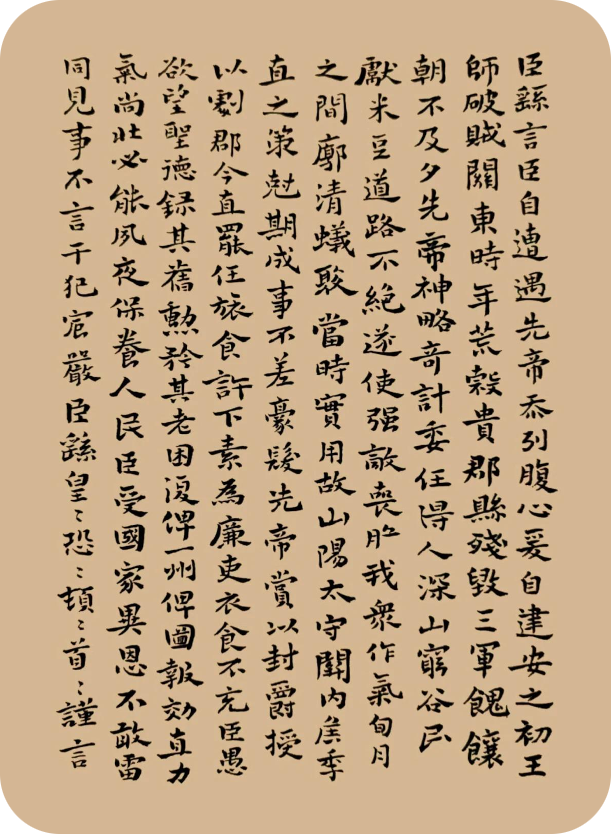 臣繇言臣自遭遇先帝忝列腹心爰自建安之初王
師破賊關東時年荒穀貴郡縣殘毀三軍餽饟
朝不及夕先帝神略奇計委任得人深山窮谷民
獻米豆道路不絕遂使强敵喪膽我衆作氣旬月
之間廓清蟻聚當時實用故山陽太守關內侯季
直之策尅期成事不差豪髮先帝賞以封爵授
以劇郡今直罷任旅食許下素為廉吏衣食不充臣愚
欲望聖德錄其舊勲矜其老困復俾一州俾圖報効直力
氣尚壯必能夙夜保養人民臣受國家異恩不敢雷
同見事不言干犯宸嚴臣繇皇〻恐〻頓〻首〻謹言